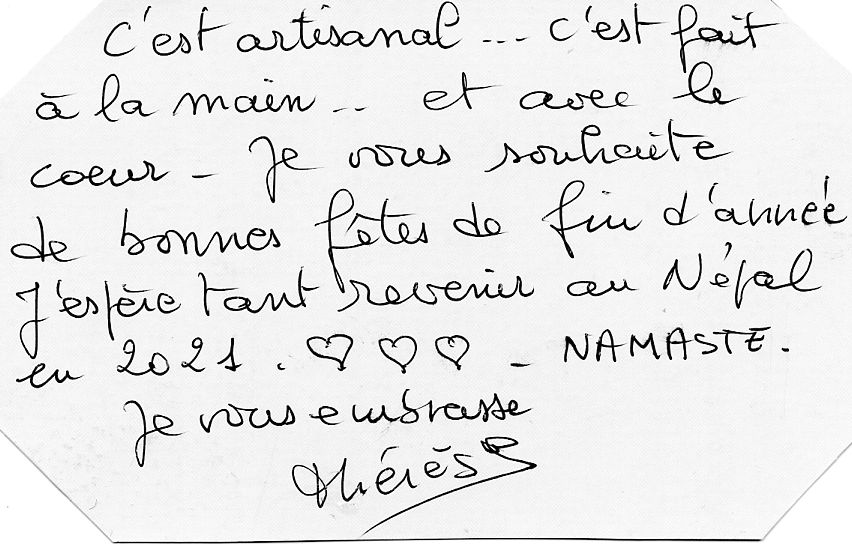 C'est artisanal... c'est fait
à la main.. et avec le
coeur - Je vous souhaite
de bonnes fêtes de fin d'année
J'espère tant revenir au Népal
en 2021. ♡♡♡ - NAMASTE.
Je vous embrasse
Thérèse